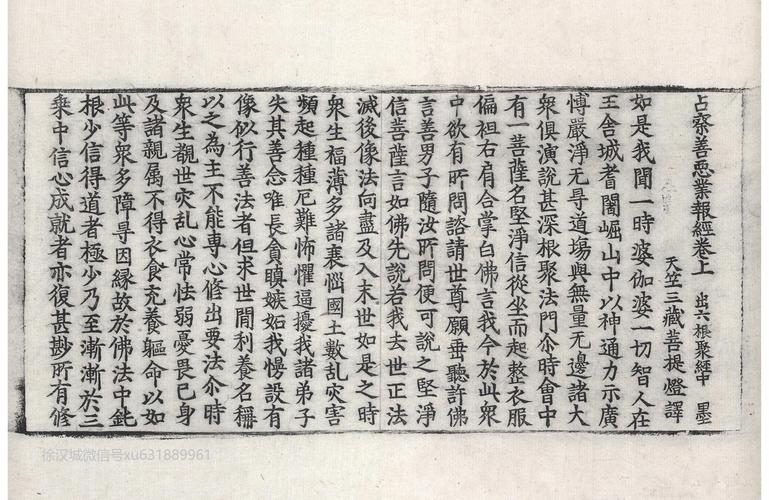 占察善惡業報經卷上 出六根聚經中 墨
天竺三藏菩提燈譯
如是我聞一時婆伽婆一切智人在
王舍城耆闍崛山中以神通力示廣
博嚴淨无㝵道塲與無量无邊諸大
衆俱演說甚深根聚法門尒時會中
有一菩薩名堅淨信從坐而起整衣服
偏袒右肩合掌白佛言我今於此衆
中欲有所問諮請世尊願垂聽許佛
言善男子隨汝所問便可說之堅淨
信菩薩言如佛先說若我去世正法
滅後像法向盡及入末世如是之時
衆生福薄多諸衰惱國土數乱灾害
頻起種種厄難怖懼逼擾我諸弟子
失其善念唯長貪瞋嫉妬我慢設有
像似行善法者但求世閒利養名稱
以之為主不能專心修出要法尒時
衆生覩世灾乱心常怯弱憂畏己身
及諸親属不得衣食充養軀命以如
此等衆多障㝵因縁故於佛法中鈍
根少信得道者極少乃至漸漸於三
乗中信心成就者亦復甚尠所有修
徐汉城微信号xu631889961